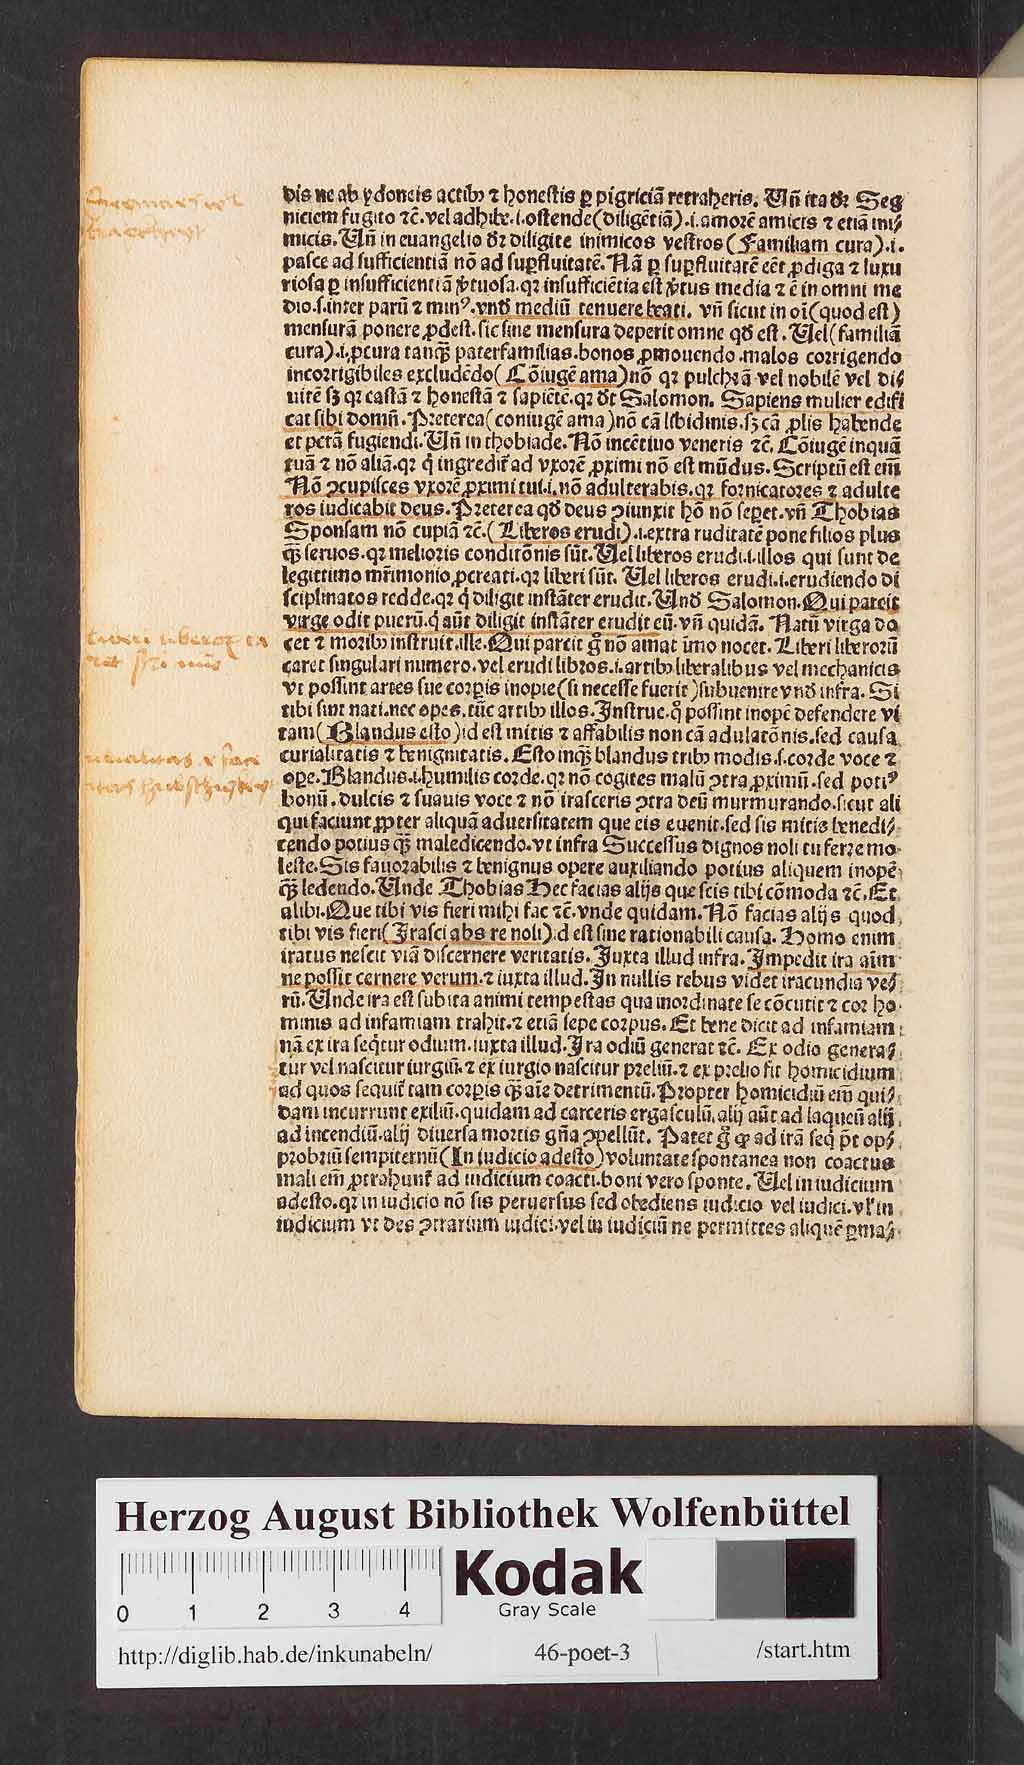 dis ne ab ydoneis actibꝫ ⁊ honestis ꝑ pigriciā retraheris. Vñ ita dr̄ Seg
niciem fugito ⁊c̄. vel adhibe .i. ostende (diligētiā) .i. amorē amicis ⁊ etiā ini⸗
micis. Vñ in euangelio dr̄ diligite inimicos vestros (Familiam cura) .i.
pasce ad sufficientiā nō ad suꝑfluitatē. Nā ꝑ suꝑfluitatē eēt ꝓdiga ⁊ luxu
riosa ꝑ insufficientiā v̄tuosa. qꝛ insufficiētia est v̄tus media ⁊ ē in omni me
dio .s. inter parū ⁊ minꝰ. vnđ mediū tenuere beati. vñ sicut in oī (quod est)
mensurā ponere ꝓdest. sic sine mensura deperit omne qđ est. Vel (familiā
cura) .i. ꝓcura tanqꝫ paterfamilias. bonos ꝓmouendo. malos corrigendo
incorrigibiles excludēdo (Cōiugē ama) nō qꝛ pulchrā vel nobilē vel di⸗
uitē sꝫ qꝛ castā ⁊ honestā ⁊ sapiētē. qꝛ dt̄ Salomon. Sapiens mulier edifi
cat sibi domū. Preterea (coniugē ama) nō cā libidinis. sꝫ cā ꝓlis habende
et pctā fugiendi. Vñ in thobiade. Nō incētiuo veneris ⁊c̄. Cōiugē inquā
tuā ⁊ nō aliā. qꝛ q̇ ingredit̄ ad vxorē ꝓximi nō est mūdus. Scriptū est em̄
Nō ꝯcupisces vxorē ꝓximi tui .i. nō adulterabis. qꝛ fornicatores ⁊ adulte
ros iudicabit deus. Preterea qđ deus ꝯiunxit hō nō seꝑet. vñ Thobias
Sponsam nō cupiā ⁊c̄. (Liberos erudi) .i. extra ruditatē pone filios plus
qꝫ seruos. qꝛ melioris conditōnis sūt. Vel liberos erudi .i. illos qui sunt de
legittimo mr̄imonio ꝓcreati. qꝛ liberi sūt. Vel liberos erudi .i. erudiendo di
sciplinatos redde. qꝛ q̇ diligit instāter erudit. Vnđ Salomon. Qui parcit
virge odit puerū. q̇ aūt diligit instāter erudit eū. vñ quidā. Natū virga do
cet ⁊ moribꝫ instruit ille. Qui parcit g̊ nō amat īmo nocet. Liberi liberorū
caret singulari numero. vel erudi libros .i. artibꝫ liberalibus vel mechanicis
vt possint artes sue corꝑis inopie (si necesse fuerit) subuenire vnđ infra. Si
tibi sint nati. nec opes. tūc artibꝫ illos. Instrue. q̊ possint inopē defendere vi
tam (Blandus esto) id est mitis ⁊ affabilis non cā adulatōnis. sed causa
curialitatis ⁊ benignitatis. Esto inqꝫ blandus tribꝫ modis .s. corde voce ⁊
ope. Blandus .i. humilis corde. qꝛ nō cogites malū ꝯtra ꝓximū. sed potiꝰ
bonū. dulcis ⁊ suauis voce ⁊ nō irasceris ꝯtra deū murmurando. sicut ali
qui faciunt ꝓpter aliquā aduersitatem que eis euenit. sed sis mitis benedi⸗
cendo potius qꝫ maledicendo. vt infra Successus dignos noli tu ferre mo⸗
leste. Sis fauorabilis ⁊ benignus opere auxiliando potius aliquem inopē
qꝫ ledendo. Unde Thobias Hec facias alijs que scis tibi cōmoda ⁊c̄. Et
alibi. Que tibi vis fieri mihi fac ⁊c̄. vnde quidam. Nō facias alijs quod
tibi vis fieri (Irasci abs re noli) .d est sine rationabili causa. Homo enim
iratus nescit viā discernere veritatis. Juxta illud infra. Impedit ira aīm
ne possit cernere verum. ⁊ iuxta illud. In nullis rebus videt iracundia ve⸗
rū. Unde ira est subita animi tempestas qua inordinate se cōcutit ⁊ cor ho⸗
minis ad infamiam trahit. ⁊ etiā sepe corpus. Et bene dicit ad infamiam
nā ex ira seq̄tur odium. iuxta illud. Ira odiū generat ⁊c̄. Ex odio genera⸗
tur vel nascitur iurgiū. ⁊ ex iurgio nascitur preliū. ⁊ ex prelio fit homicidium
ad quos sequit̄ tam corꝑis qꝫ aīe detrimentū. Propter homicidiū em̄ qui⸗
dam incurrunt exiliū. quidam ad carceris ergasculū. alij aūt ad laqueū alij
ad incendiū. alij diuersa mortis gn̄a ꝯpellūt. Patet g̊ ꝙ ad irā seq̄ p̄t op⸗
probriū sempiternū (In iudicio adesto) voluntate spontanea non coactus
mali em̄ ꝓtrahunt̄ ad iudicium coacti. boni vero sponte. Vel in iudicium
adesto. qꝛ in iudicio nō sis peruersus sed obediens iudicio vel iudici. vl̄ in
iudicium vt des ꝯtrarium iudici. vel in iudiciū ne permittes aliquē ꝑma⸗
Herzog August Bibliothek Wolfenbüttel
Kodak
Gray Scale
0 1 2 3 4
http://diglib.hab.de/inkunabeln/ 46-poet-3 /start.htm